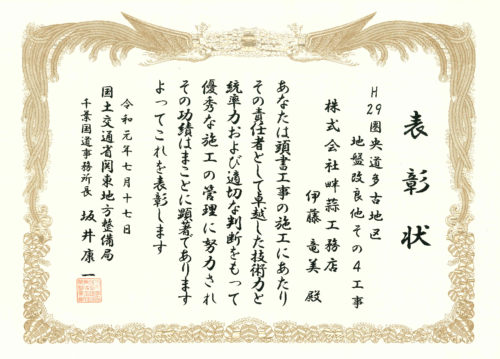 表彰状
H29圏央道多古地区
地盤改良他その4工事
株式会社畔蒜工務店
伊藤竜美殿
あなたは頭書工事の施工にあたり
その責任者として卓越した技術力と
統率力および適切な判断をもって
優秀な施工の管理に努力され
その功績はまことに顕著であります
よってこれを表彰します
令和元年七月十七日
国土交通省関東地方整備局
千葉国道事務所長 坂井康一